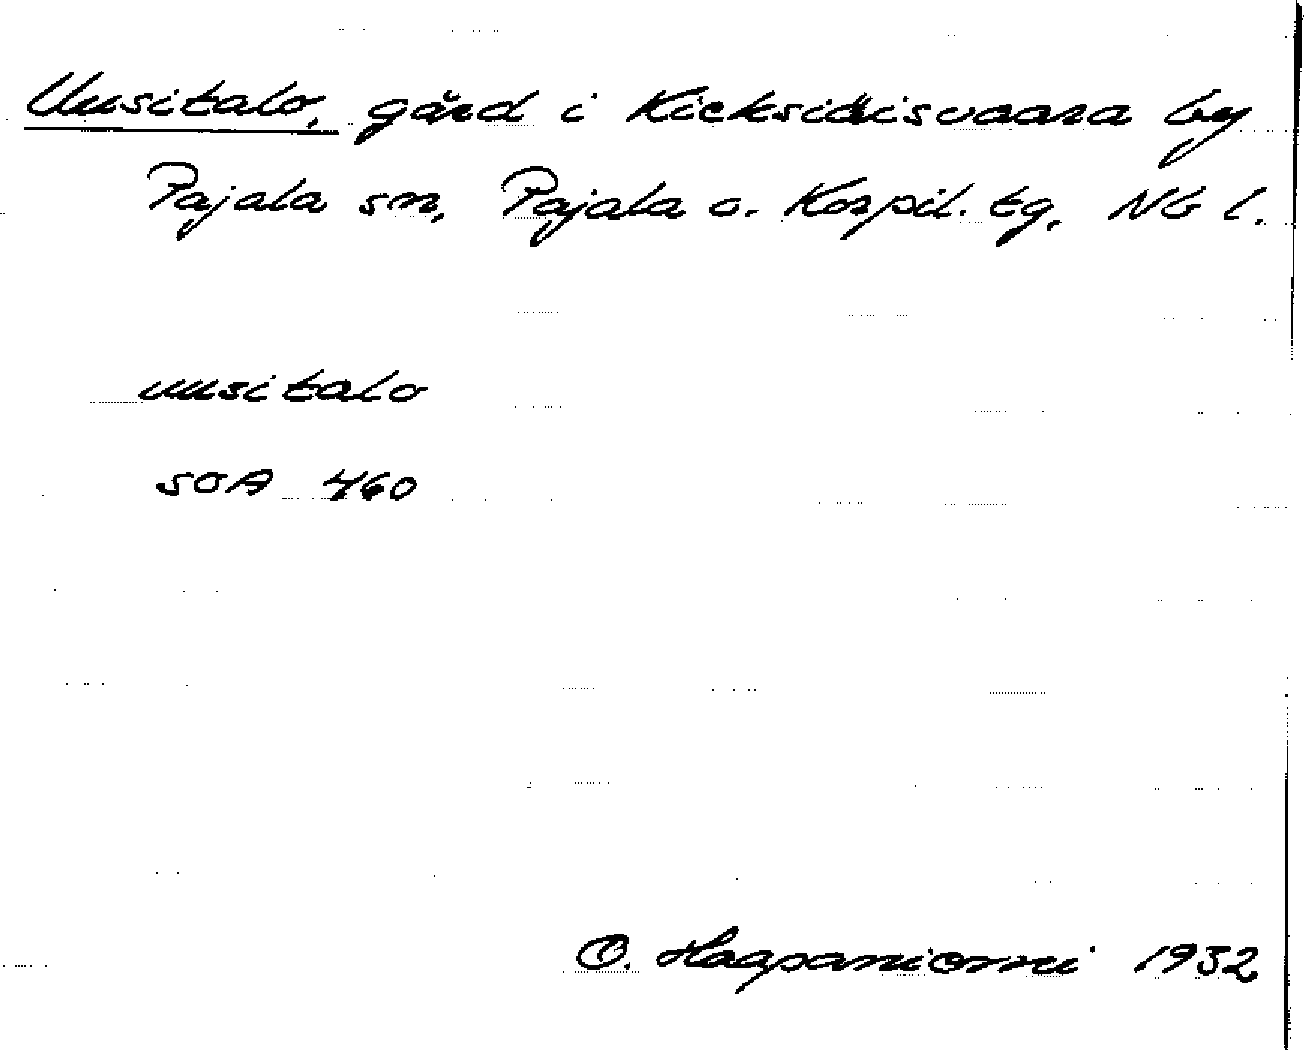 Uusitalo, gård i Kieksiäisvaara by
Pajala sn, Pajala o. Korpil. tg, Nb l.
uusitalo
SOA 460
O. Haapaniemi 1932